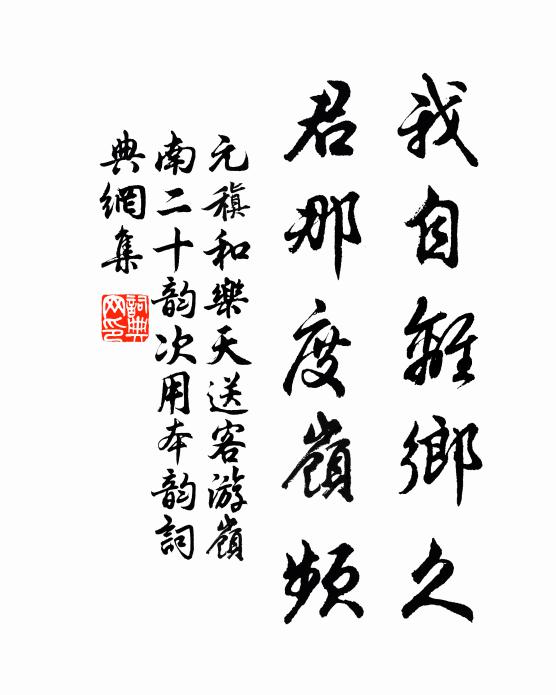 我自離鄉久
君那度嶺頻
元稹和樂天送客游嶺
南二十韵次用本韵詞
典網集
詞典
网印